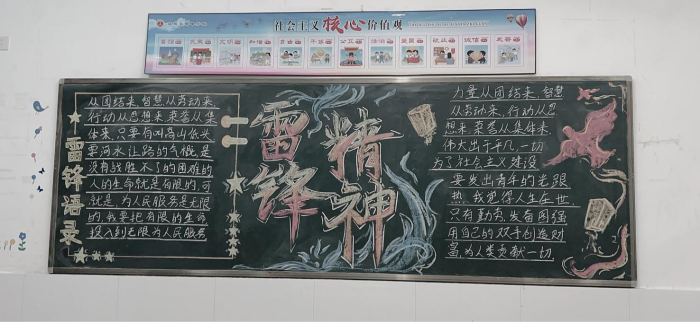 社会主义核心价值观
富强
民主
文明
和谐
自由
平等
公正
法治
爱国
敬业
诚信
友善
雷锋语录
从团结来,智慧从劳动来,
行动从思想来荣誉从集
体来,只要有叫高山低头
要河水让路的气概,是
没有战胜不了的困难的
人的生命就是有限的,可
就是,为人民服务是无限
的,我要把有限的生命
投入到无限为人民服务
雷锋
精神
力量从团结来,智慧
从劳动来,行动从思
想来荣誉从集体来,
伟大出于平凡,一切
为了社会主义建设
要发出青年的光跟
热,我觉得人生在世
只有勤劳,发奋图强
用自己的双手创造财
富,为人类贡献一切